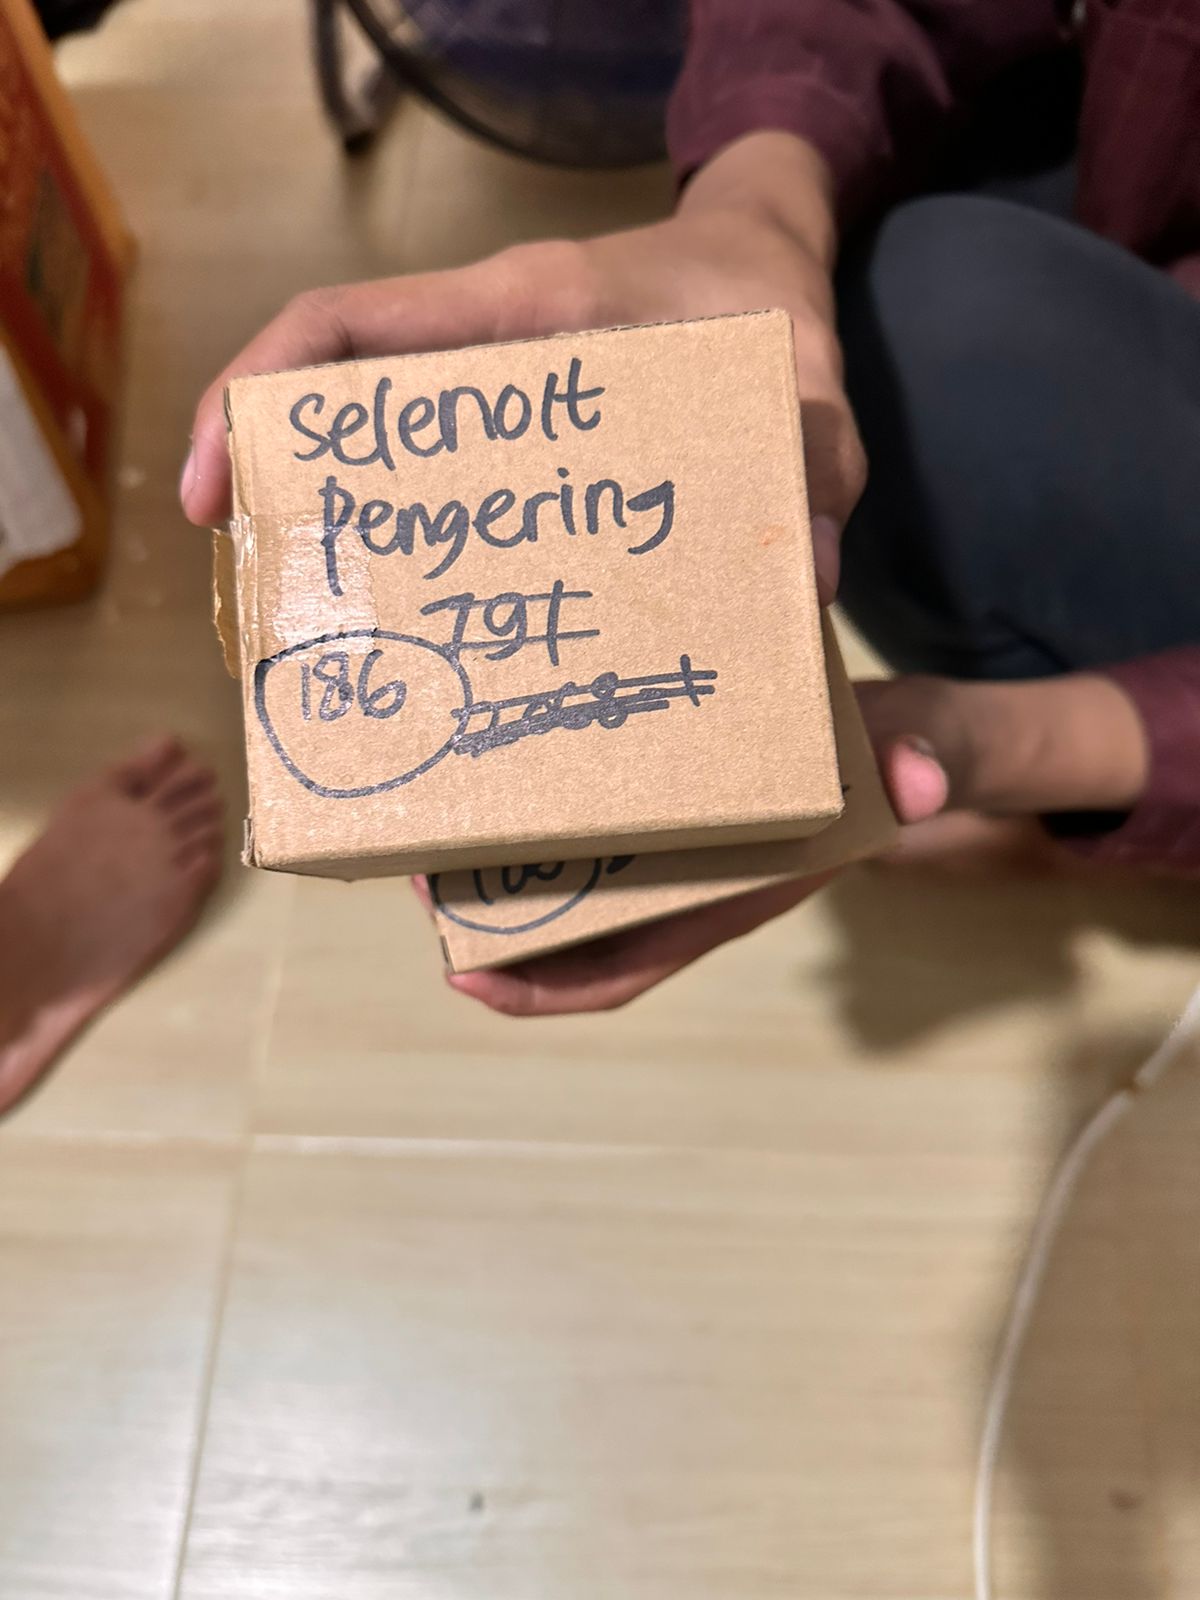 Selenolt
Pengering
79t
186